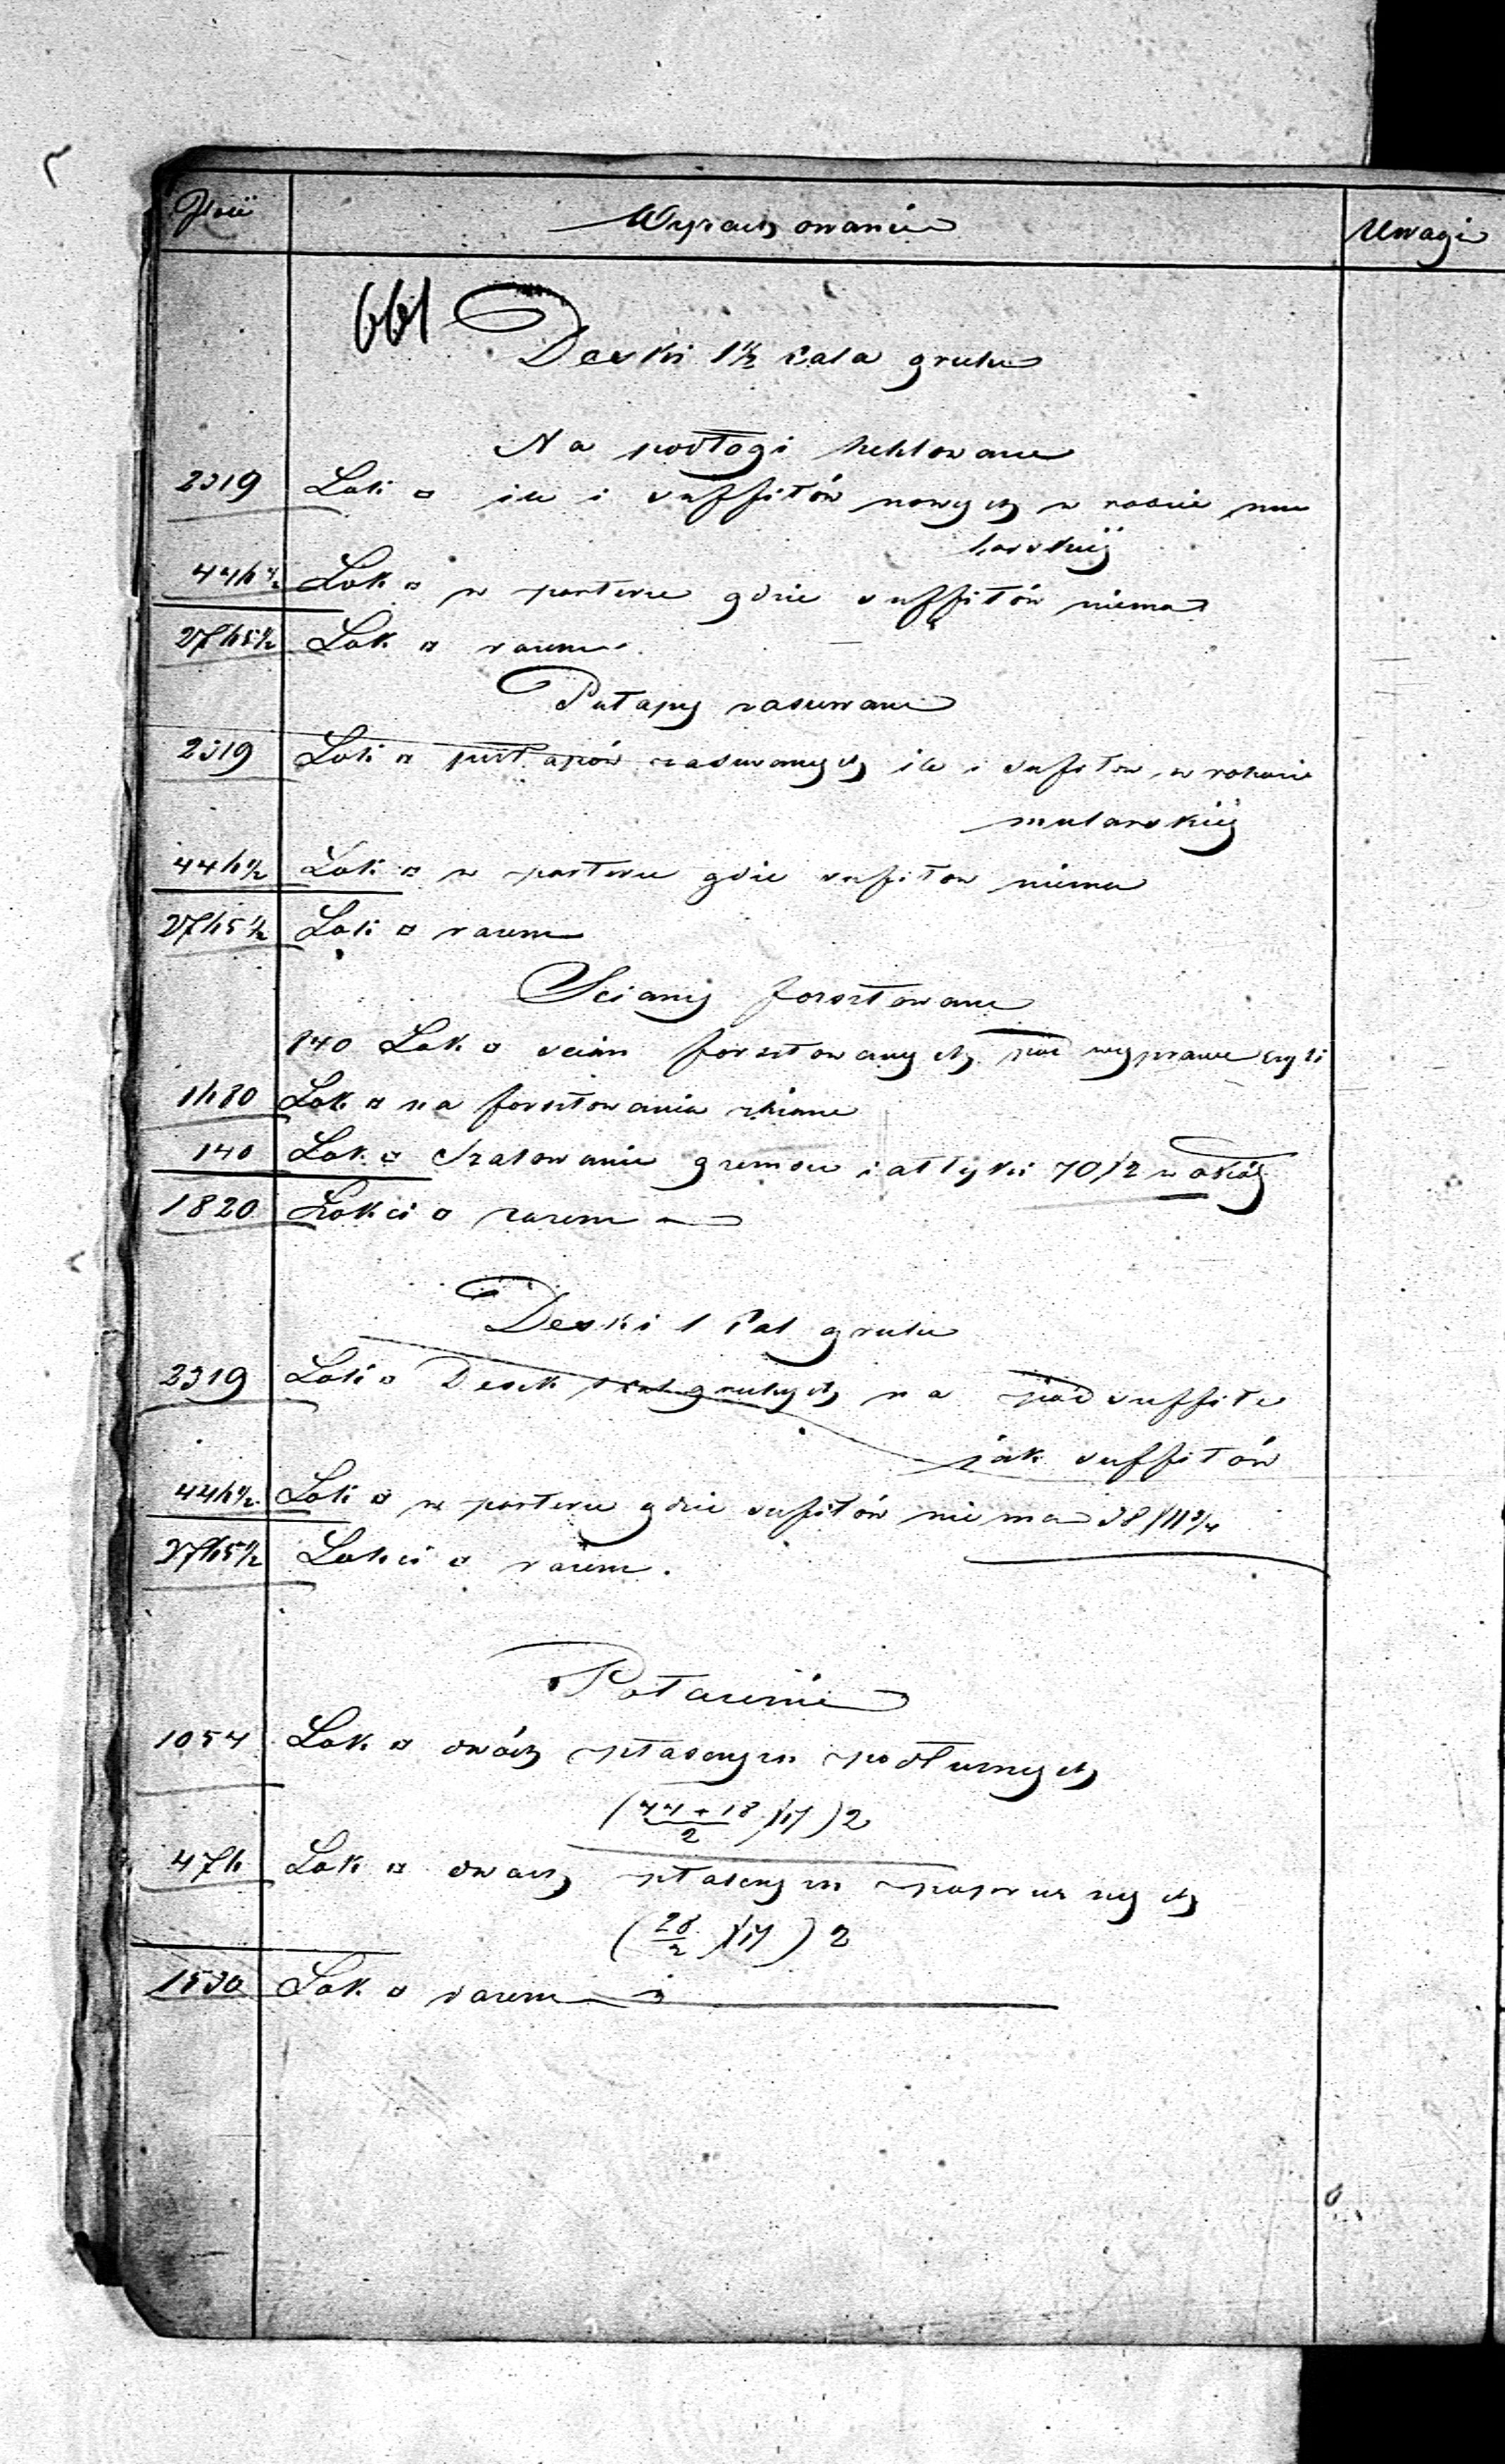 Ilość Wyrachowanie Uwagi
661
Deski 1½ cala grube
Na podłogi heblowane
2319 Łok □ ile i suffitów nowych w robocie mu
larskiéj
446½ Łok □ w parterze gdzie suffitów niema
2765½ Łok □ razem
Pułapy zasuwane
2319 Łok □ pułapów zasuwanych ile i sufitów w robocie
mularskiéj
446½ Łok □ w parterze gdzie sufitow niema
2765½ Łok □ razem
Sciany forsztowane
840 Łok □ scian forsztowanych pod wyprawe czyli
1680 Łok □ na forsztowania
140 Łok □ Szalowanie gzemsu i attyki 70/2
1820 Łokci □ razem
Deski 1 Cal grube
2319 Łok □ Desek 1 cal grubych na pod suffite
jak suffitów
446½ Łok □ w parterze gdzie sufitów niema 38/11¾
2765½ Łokci □ razem.
Połacenie
1054 Łok □ dwóch płaszczyzn podłużnych
(44+18/2 /17) 2
476 Łok □ dwóch płaszczyzn poprzecznych
(28/2 /17) 2
1530 Łok □ razem